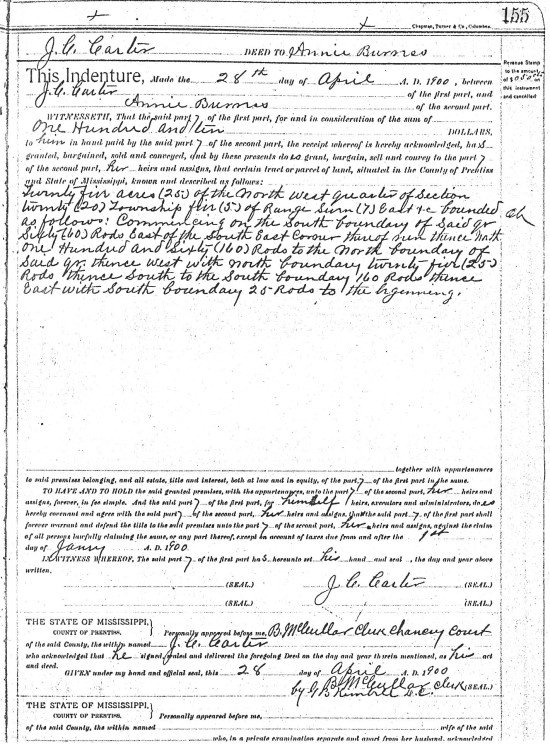 155
Chapman, Turner & Co., Columbus.
J. C. Carter DEED TO Annie Burnes
Revenue Stamp
to the amount
of $0.50 on
this instrument
and cancelled
This Indenture, Made the 28th day of April A. D. 1900, between
J. C. Carter of the first part, and
Annie Burnes of the second part.
WITNESSETH, That the said party of the first part, for and in consideration of the sum of
One Hundred and ten DOLLARS,
to him in hand paid by the said party of the second part, the receipt whereof is hereby acknowledged, has
granted, bargained, sold and conveyed, and by these presents does grant, bargain, sell and convey to the party
of the second part, her heirs and assigns, that certain tract or parcel of land, situated in the County of Prentiss
and State of Mississippi, known and described as follows:
Twenty five acres (25) of the North west quarter of Section
twenty (20) Township five (5) of Range Seven (7) East &c bounded
as follows: Commencing on the South boundary of Said qr
Sixty (60) Rods East of the South East Corner thereof run thence North
One Hundred and Sixty (160) Rods to the North boundary of
Said qr. thence west with North boundary twenty five (25)
Rods thence South to the South boundary 160 Rods thence
East with South boundary 25 Rods to the beginning.
together with appurtenances
to said premises belonging, and all estate, title and interest, both at law and in equity, of the party of the first part in the same.
TO HAVE AND TO HOLD the said granted premises, with the appurtenances, unto the party of the second part, her heirs and
assigns, forever, in fee simple. And the said party of the first part, for himself heirs, executors and administrators, does
hereby covenant and agree with the said party of the second part, her heirs and assigns, that the said party of the first part shall
forever warrant and defend the title to the said premises unto the party of the second part, her heirs and assigns, against the claim
of all persons lawfully claiming the same, or any part thereof, except on account of taxes due from and after the 1st
day of Janry A. D. 1900
IN WITNESS WHEREOF, The said party of the first part has hereunto set his hand and seal, the day and year above
written.
(SEAL.) J. C. Carter (SEAL.)
(SEAL.) (SEAL.)
THE STATE OF MISSISSIPPI,
COUNTY OF PRENTISS, Personally appeared before me, B. McCullar Clerk Chancery Court
of the said County, the within named J. C. Carter
who acknowledged that he signed, sealed and delivered the foregoing Deed on the day and year therein mentioned, as his act
and deed.
GIVEN under my hand and official seal, this 28 day of April A. D. 1900
B. McCullar Clerk (SEAL.)
by G. B. Kimbell D.C.
THE STATE OF MISSISSIPPI,
COUNTY OF PRENTISS, Personally appeared before me,
of the said County, the within named wife of the said
who, in a private examination separate and apart from her husband, acknowledged